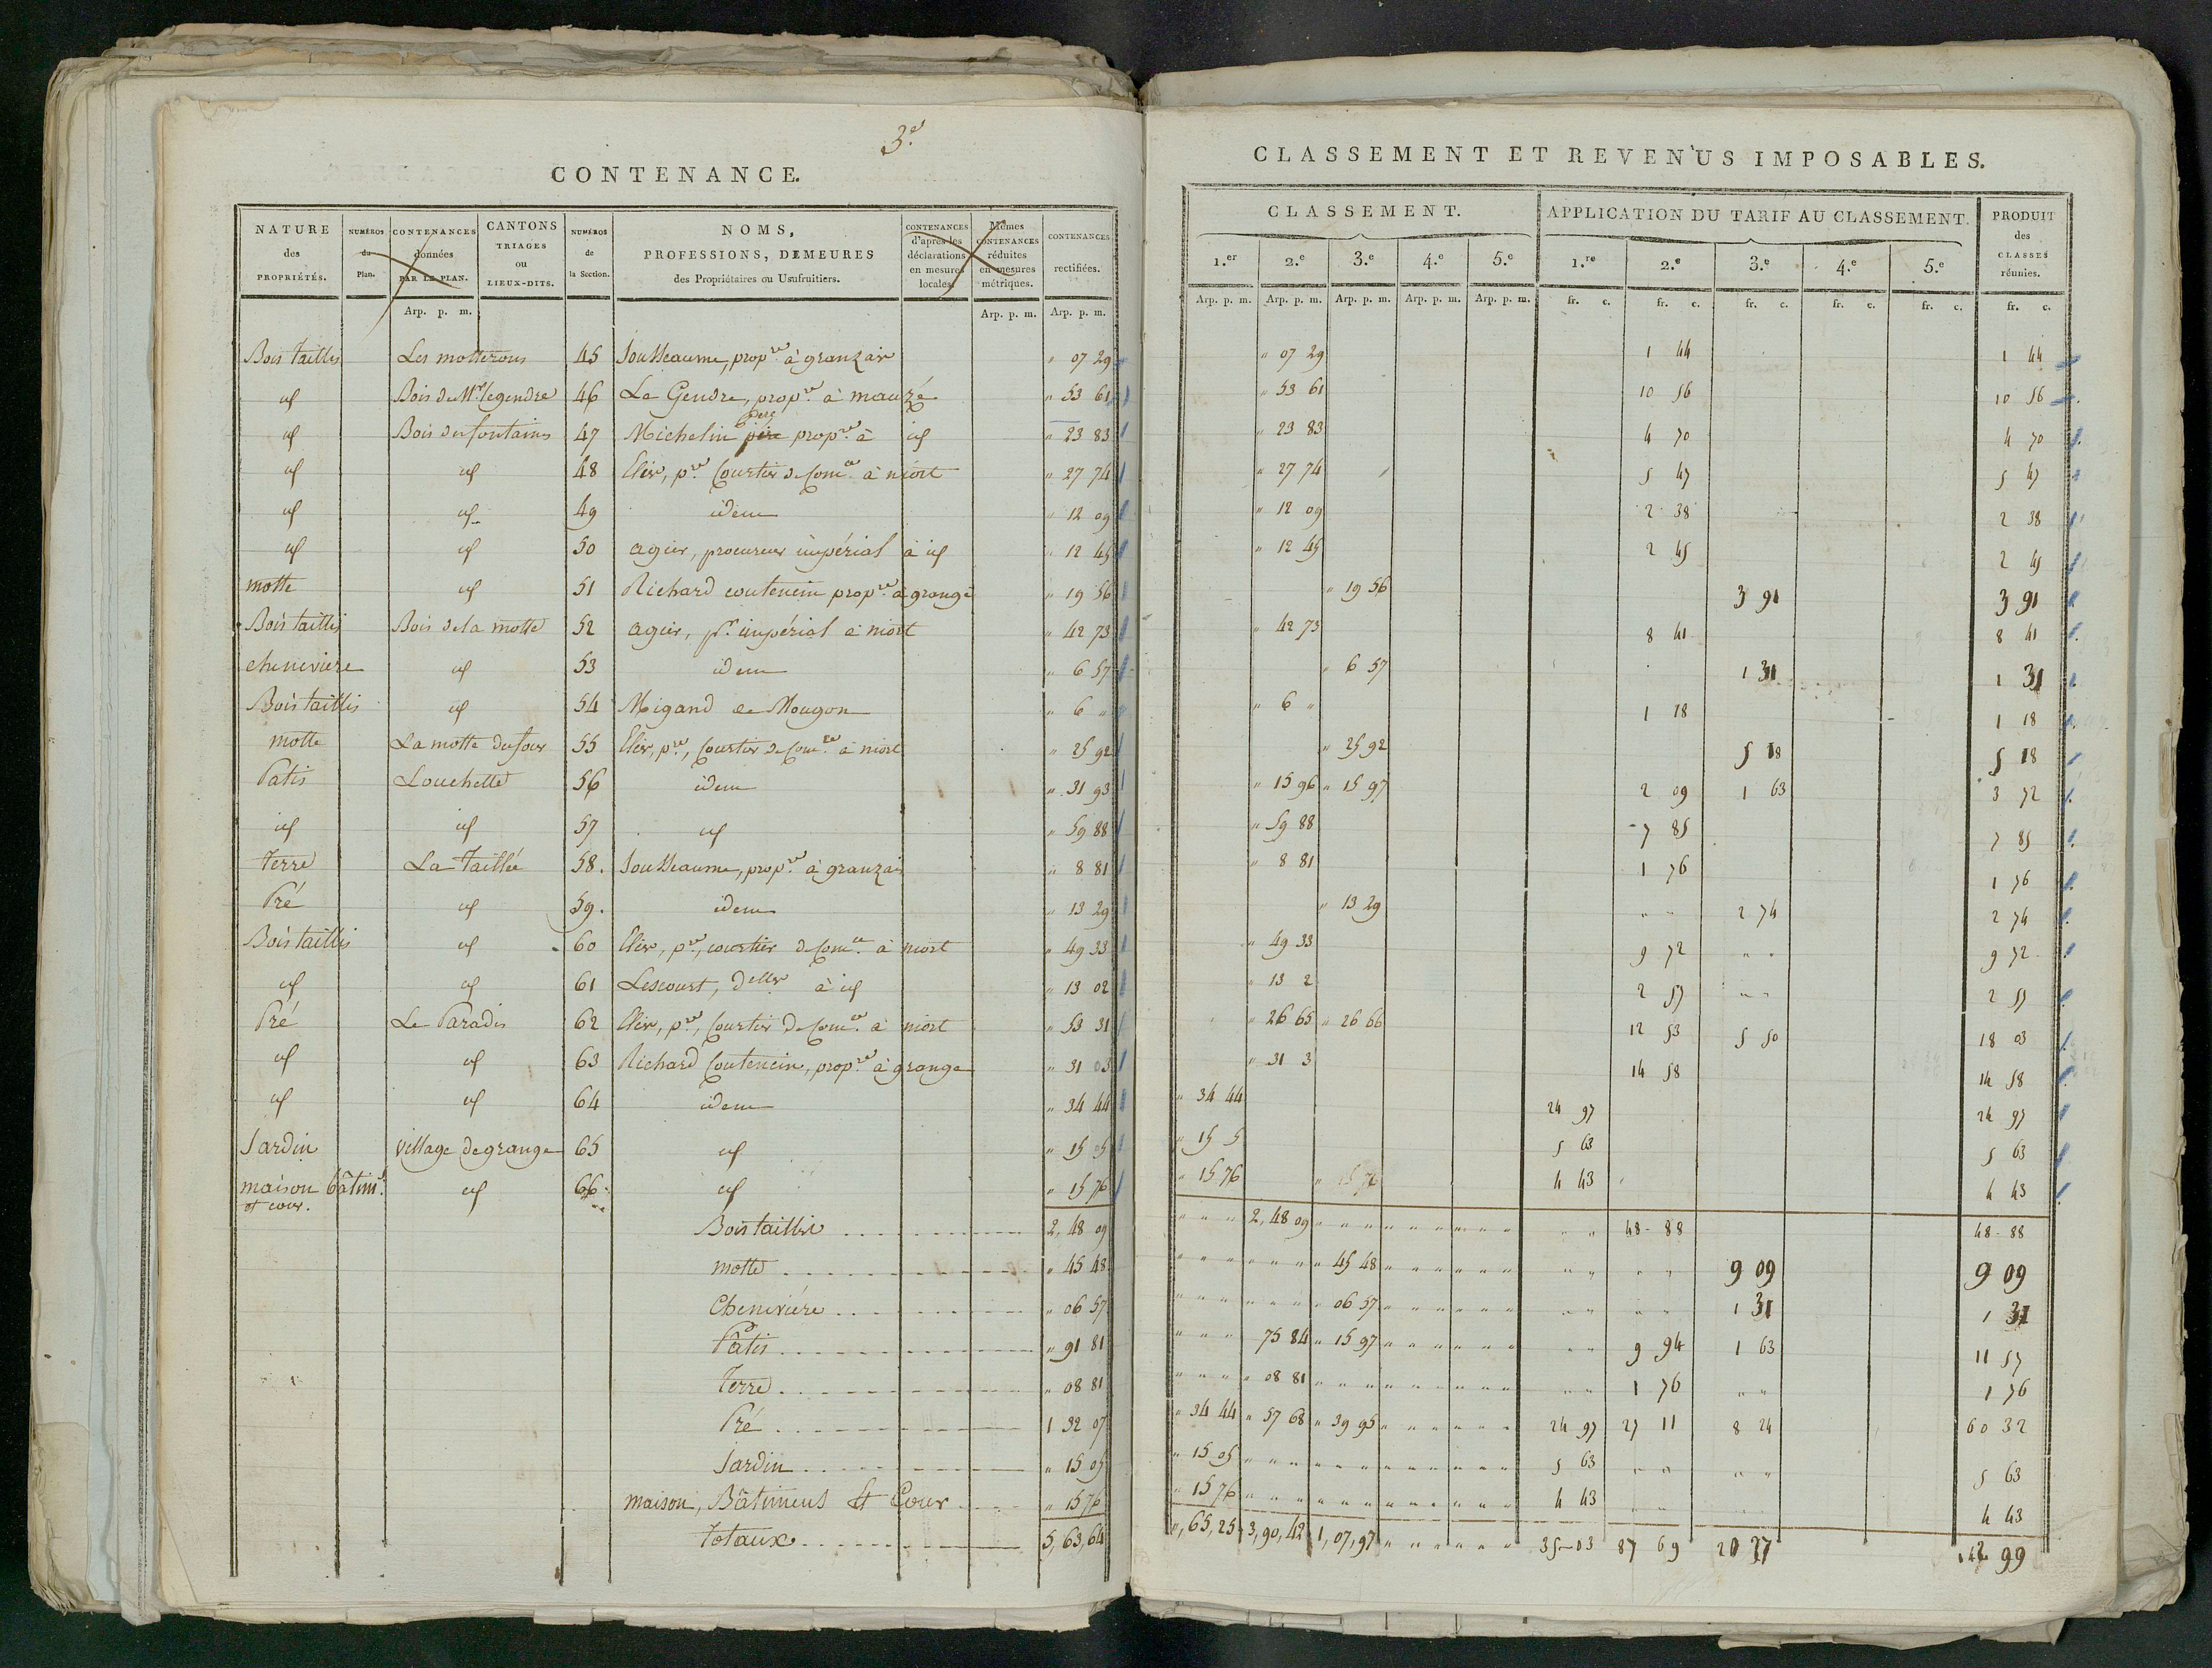 3.e
CONTENANCE.
NATURE des PROPRIÉTÉS. NUMÉROS du Plan. CONTENANCES données PAR LE PLAN. CANTONS TRIAGES ou LIEUX-DITS. NUMÉROS de la Section. NOMS, PROFESSIONS, DEMEURES des Propriétaires ou Usufruitiers. CONTENANCES d'après les déclarations en mesures locales. Mêmes CONTENANCES réduites en mesures métriques. CONTENANCES rectifiées.
Arp. p. m. Arp. p. m. Arp. p. m.
Bois taillis Les motterous 45 Sousseaume, prop.re à granzai " 07 29
id Bois de Mr. legendre 46 La Gendre, prop.re à mauzé " 53 61
id Bois des fontaines 47 Michelin père prop.re à id " 23 83
id id 48 Clér, p.re Courtier de Com.ce à niort " 27 74
id id 49 idem " 12 09
id id 50 agier, procureur impérial à id " 12 45
motte id 51 Richard coutencin prop.re à grange " 19 56
Bois taillis Bois de la motte 52 agier, p.r impérial à niort " 42 73
cheneviere id 53 idem " 6 57
Bois taillis id 54 Migand de Mougon " 6 "
motte La motte du four 55 Clér, p.re, Courtier de Com.ce à niort " 25 92
Patis Louchette 56 idem " 31 93
id id 57 id " 59 88
terre La Taillée 58. Sousseaume, prop.re à granzai " 8 81
Pré id 59. idem " 13 29
Bois taillis id 60 Clér, p.re, courtier de Com.ce à niort " 49 33
id id 61 Lescourt, delle à id " 13 02
Pré Le Paradis 62 Clér, p.re, Courtier de Com.ce à niort " 53 31
id id 63 Richard Coutencin, prop.re à grange " 31 03
id id 64 idem " 34 44
Jardin village de grange 65 id " 15 05
maison bâtim.t et cour. id 66 id " 15 76
Bois taillis 2, 48 09
motte " 45 48
Chenevière " 06 57
Pâtis " 91 81
Terre " 08 81
Pré 1 32 07
Jardin " 15 05
maison, Bâtimens et Cour " 15 76
totaux 5, 63, 64
CLASSEMENT ET REVENUS IMPOSABLES.
CLASSEMENT. APPLICATION DU TARIF AU CLASSEMENT. PRODUIT des CLASSES réunies.
1.er 2.e 3.e 4.e 5.e 1.re 2.e 3.e 4.e 5.e
Arp. p. m. Arp. p. m. Arp. p. m. Arp. p. m. Arp. p. m. fr. c. fr. c. fr. c. fr. c. fr. c. fr. c.
" 07 29 1 44 1 44
" 53 61 10 56 10 56
" 23 83 4 70 4 70
" 27 74 5 47 5 47
" 12 09 2 38 2 38
" 12 45 2 45 2 45
" 19 56 3 91 3 91
" 42 73 8 41 8 41
" 6 57 1 31 1 31
" 6 " 1 18 1 18
" 25 92 5 18 5 18
" 15 96 " 15 97 2 09 1 63 3 72
" 59 88 7 85 7 85
" 8 81 1 76 1 76
" 13 29 " " 2 74 2 74
" 49 33 9 72 " " 9 72
" 13 2 2 57 " " 2 57
" 26 65 " 26 66 12 53 5 50 18 03
" 31 3 14 58 14 58
" 34 44 24 97 24 97
" 15 5 5 63 5 63
" 15 76 " 15 76 4 43 4 43
" " " 2, 48 09 " " " " " " " " " " " 48-88 48-88
" " " " " " " 45 48 " " " " " " " " " " 9 09 9 09
" " " " " " " 06 57 " " " " " " " " " " 1 31 1 31
" " " 75 84 " 15 97 " " " " " " " " 9 94 1 63 11 57
" " " " 08 81 " " " " " " " " " " " 1 76 " " 1 76
" 34 44 " 57 68 " 39 95 " " " " " " 24 97 27 11 8 24 60 32
" 15 05 " " " " " " " " " " " " 5 63 " " " " 5 63
" 15 76 " " " " " " " " " " " " 4 43 " " 4 43
", 65, 25 3, 90, 42 1, 07, 97 " " " " " " 35-03 87 69 20 27 142 99